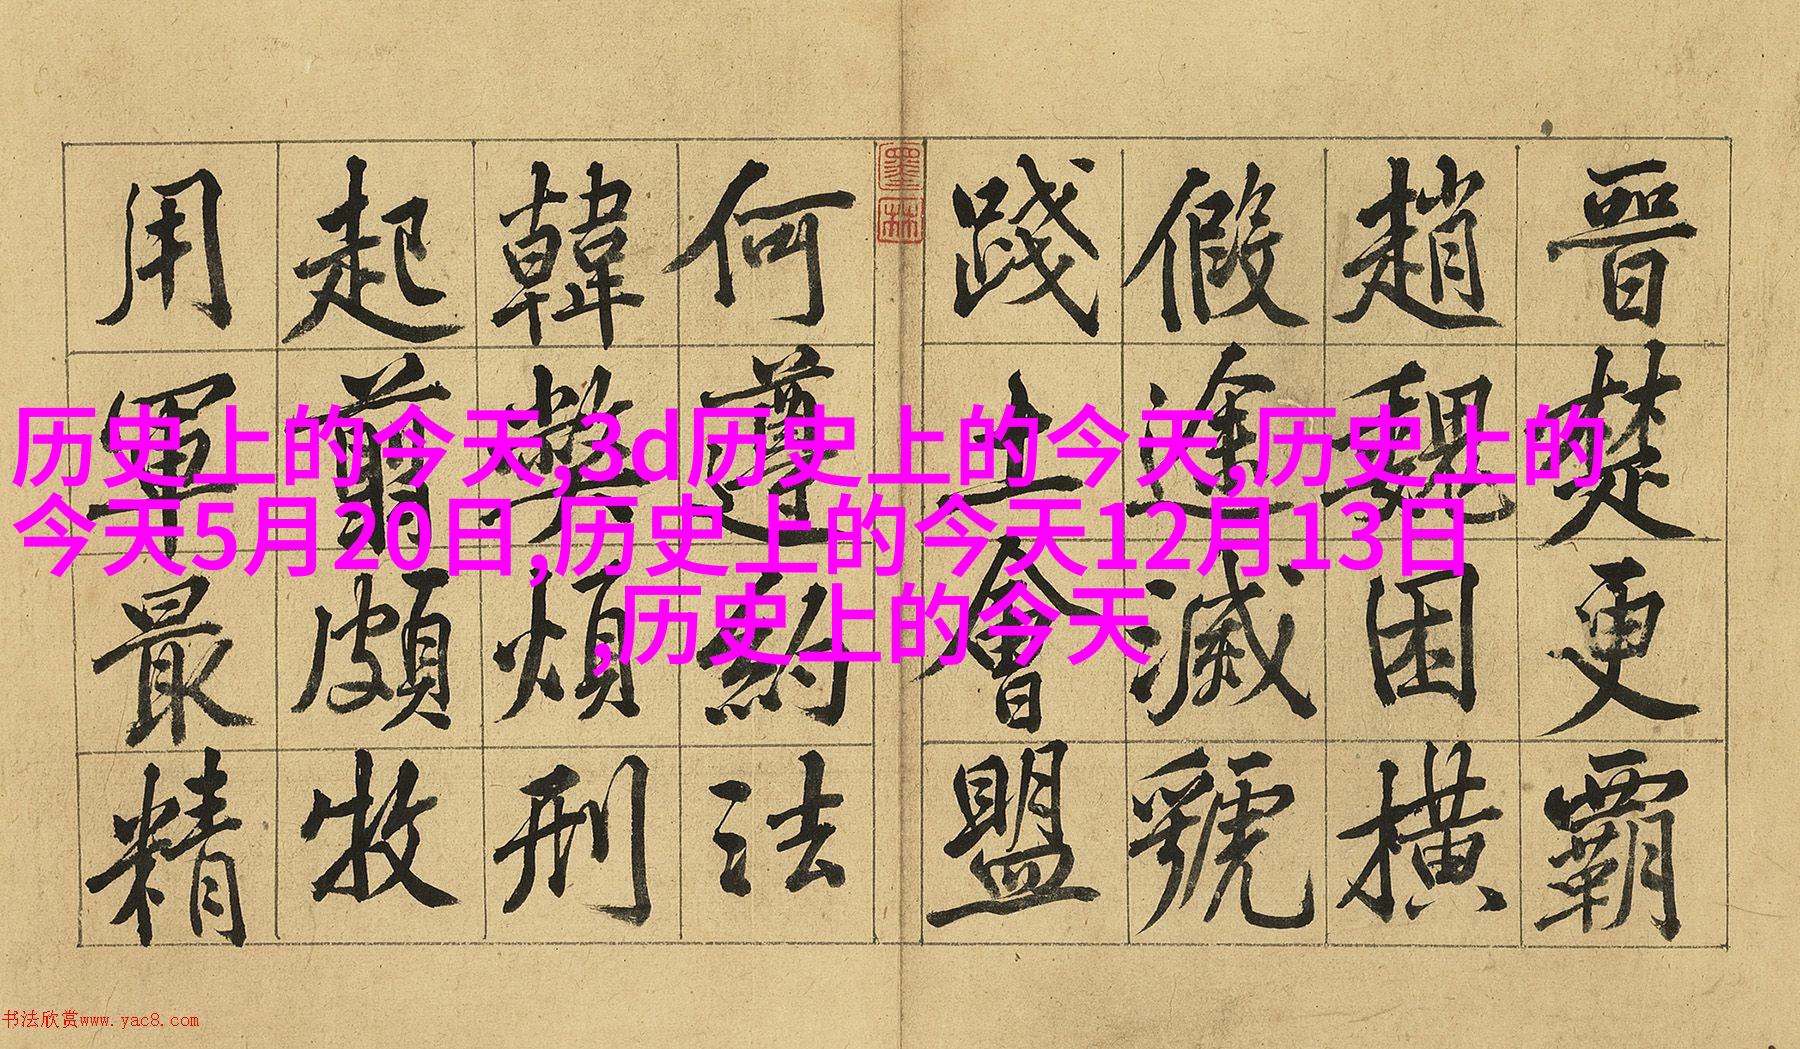 晉楚更霸
趙魏困橫
假途滅虢
踐土會盟
何遵約法
韓弊煩刑
起翦頗牧
用軍最精
墨林
历史上的今天,3d历史上的今天,历史上的
今天5月20日,历史上的今天12月13日
,历史上的今天
书法欣赏www.yac8.com